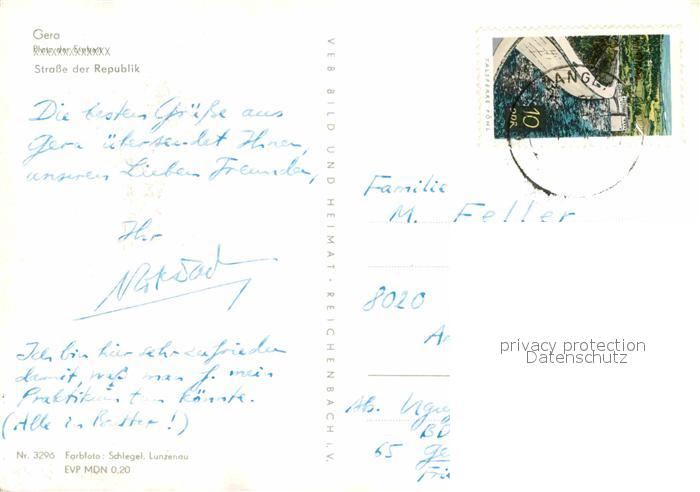 Gera
Platz der Einheit
Straße der Republik
Die besten Grüße aus
Gera übersendet Ihnen,
unseren Lieben Freunden,
Ihr
Ich bin hier sehr zufrieden
damit, was man f. mein
Praktikum tun könnte.
(Alle in Butter!)
Nr. 3296 Farbfoto: Schlegel, Lunzenau
EVP MDN 0,20
VEB BILD UND HEIMAT · REICHENBACH I. V.
TALSPERRE PÖHL
10
DDR
Familie
M. Feller
8020
privacy protection
Datenschutz
Ab.
65